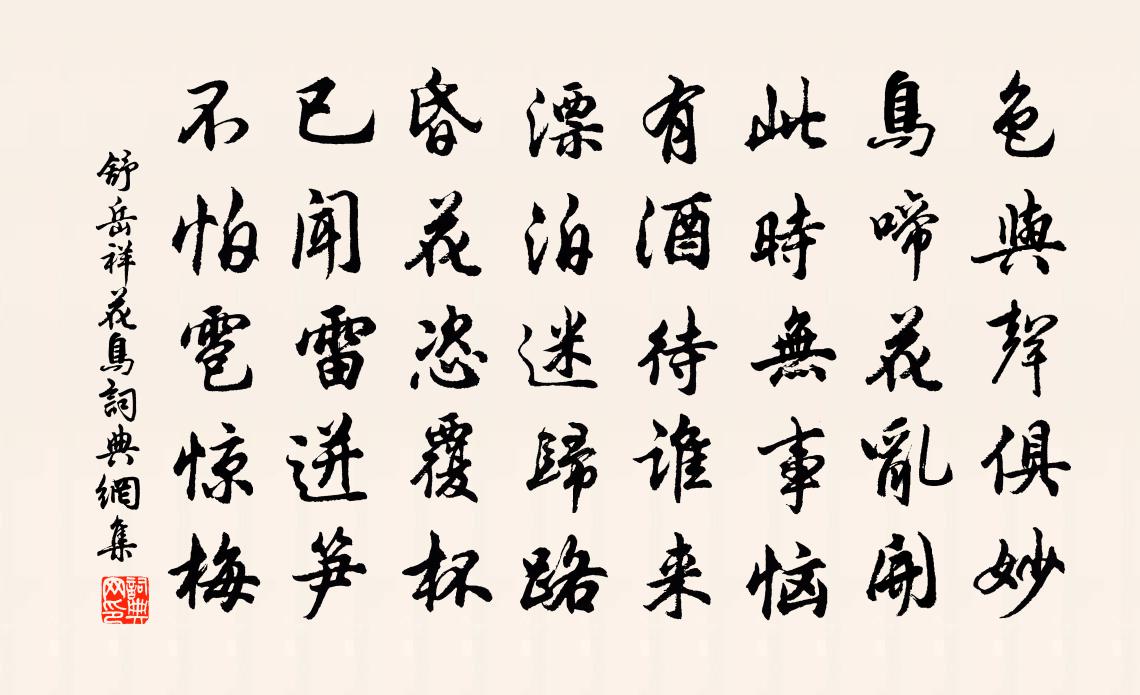 色與聲俱妙
鳥啼花亂開
此時無事恼
有酒待誰来
漂泊迷歸路
昏花恣覆杯
已闻雷迸笋
不怕雹惊梅
舒岳祥花鳥詞典網集
詞典网印